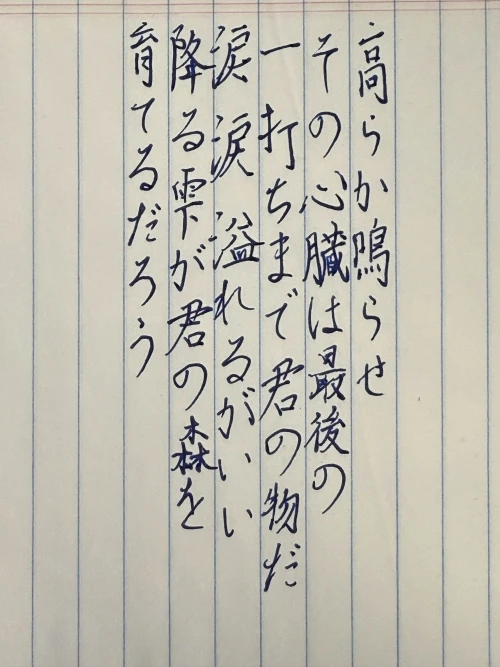 高らか鳴らせ
その心臓は最後の
一打ちまで君の物だ
涙涙溢れるがいい
降る雫が君の森を
育てるだろう